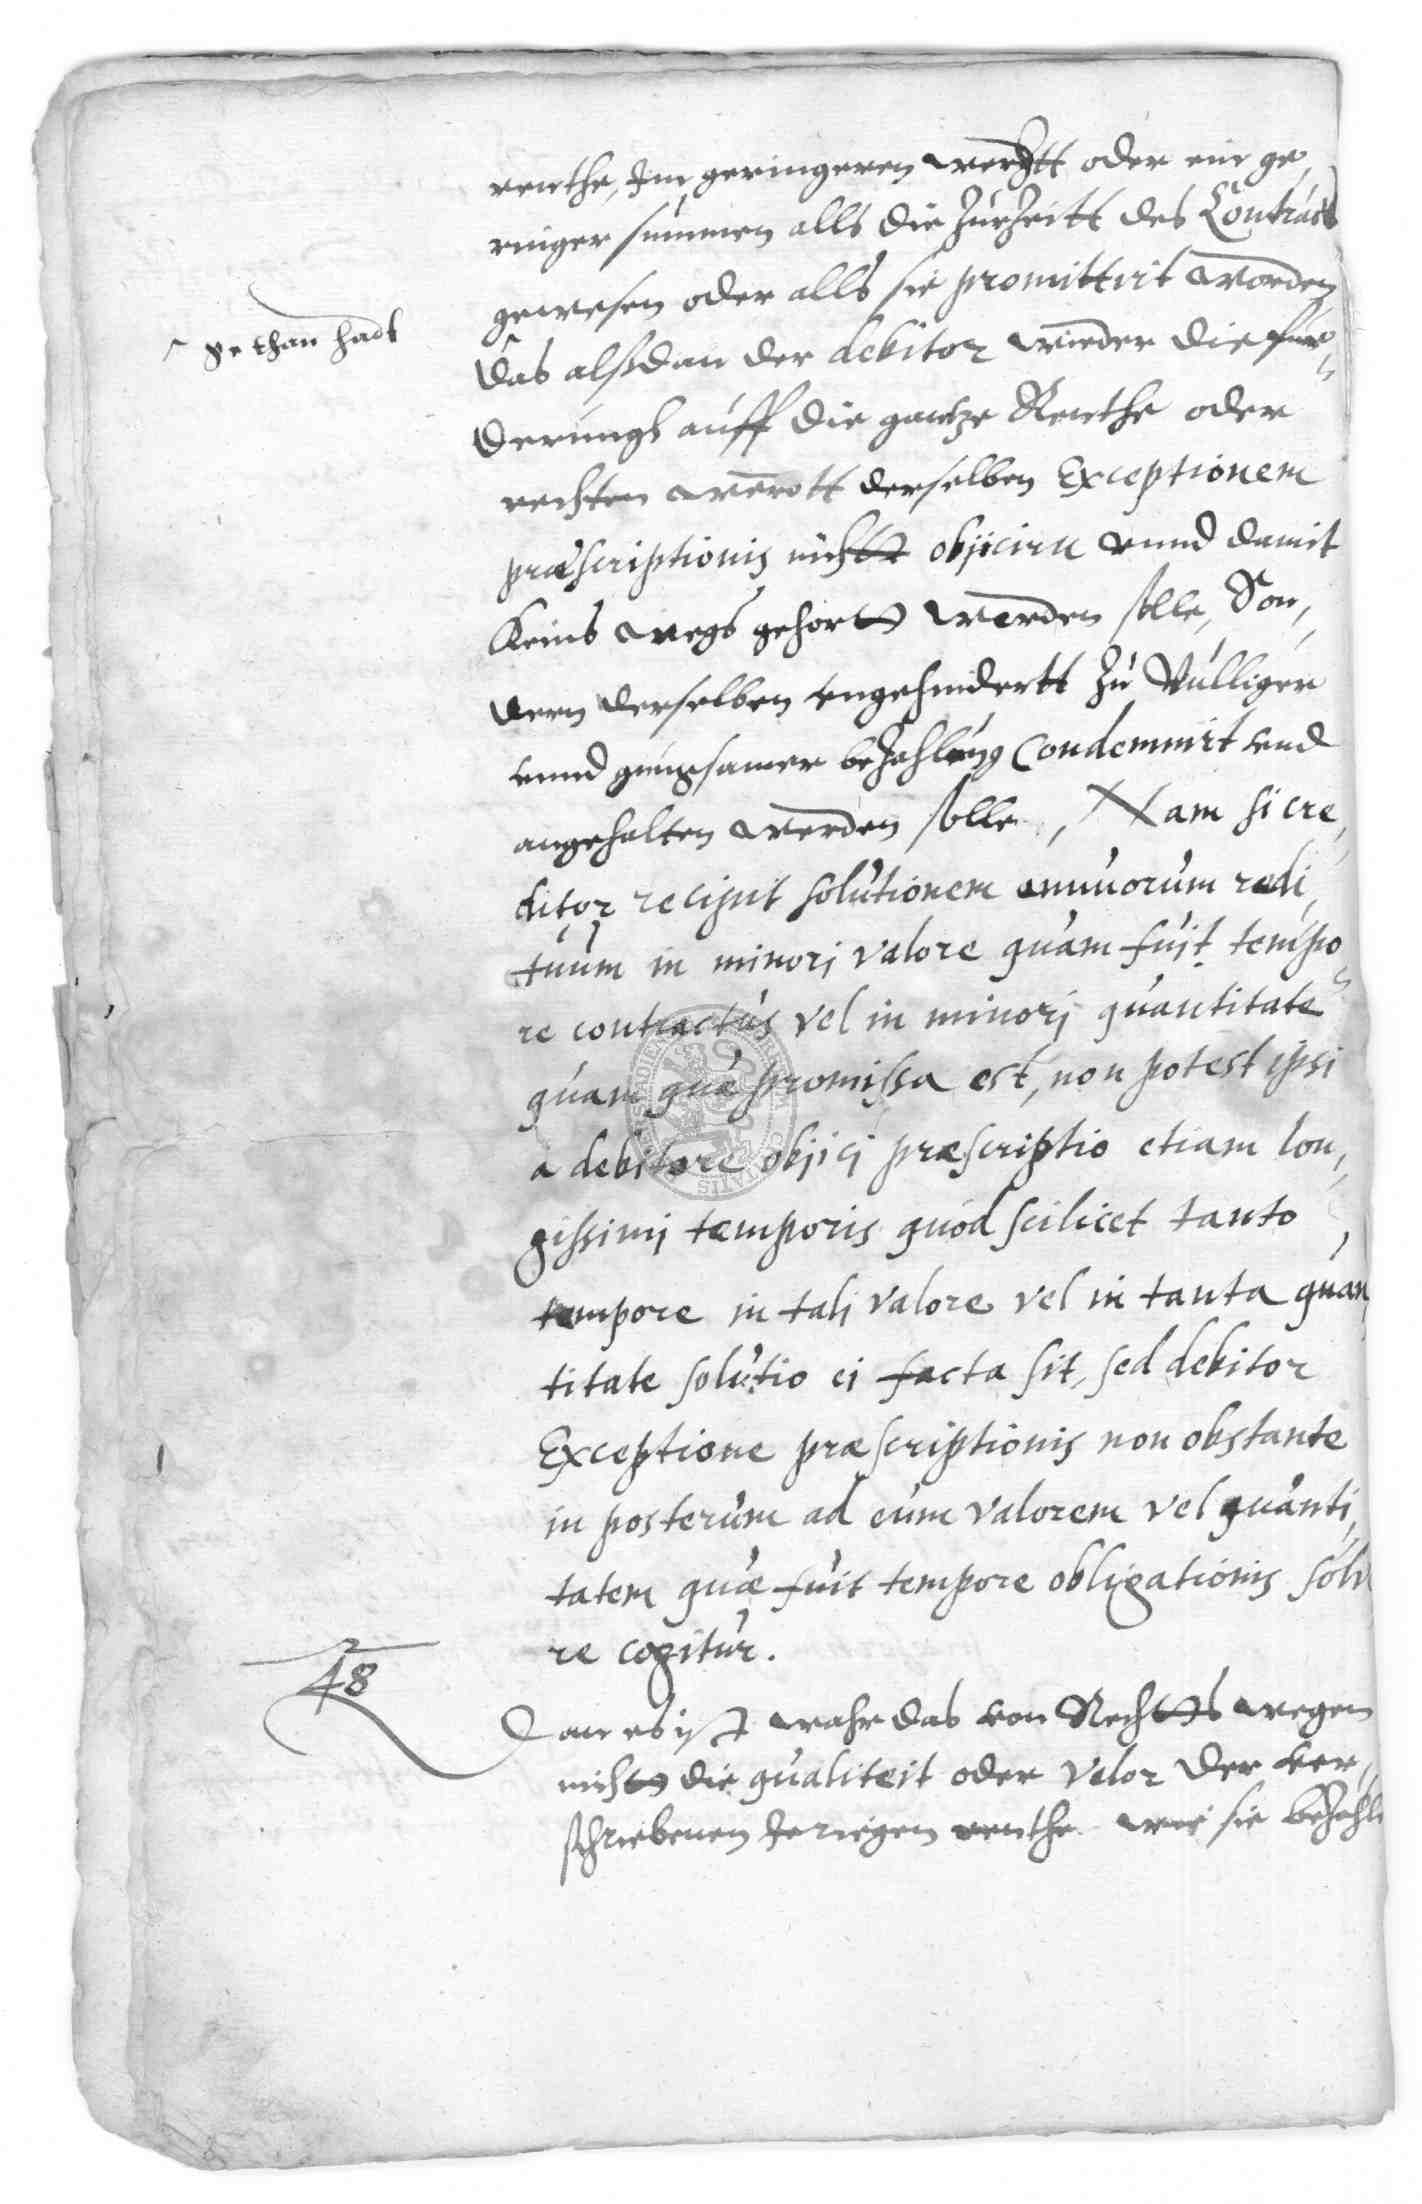 renthe, Im geringeren werdtt oder ein ge,
ringer summen alls die zur Zeitt des Contracts
gewesen oder alls sie promittirt worden
gethan hadt
das alssdan der debitor wieder die fur,
derungh auff die gantze Renthe oder
rechten werdtt derselben Exceptionem
præscriptionis nichtt objiciren unnd damit
Keins wegs gehortt werden solle, Son,
dern derselben ungehindertt zu Vulliger
unnd gnugsamer bezahlung Condemnirt und
angehalten werden solle, Nam si cre,
ditor recipit solutionem annuorum redi,
tuum in minori valore quam fuit tempo,
re contractus vel in minori quantitate
quam quæ promissa est, non potest ipsi
a debitore objici præscriptio etiam lon,
gissimi temporis quod scilicet tanto
tempore in tali valore vel in tanta quan,
titate solutio ei facta sit, sed debitor
Exceptione præscriptionis non obstante
in posterum ad eum valorem vel quanti,
tatem quæ fuit tempore obligationis solve
re cogitur.
48
Dan es ist wahr das von Rechtts wegen
nichtt die qualiteit oder Valor der ver,
schriebenen Jerigen renthe wie sie bezahlt